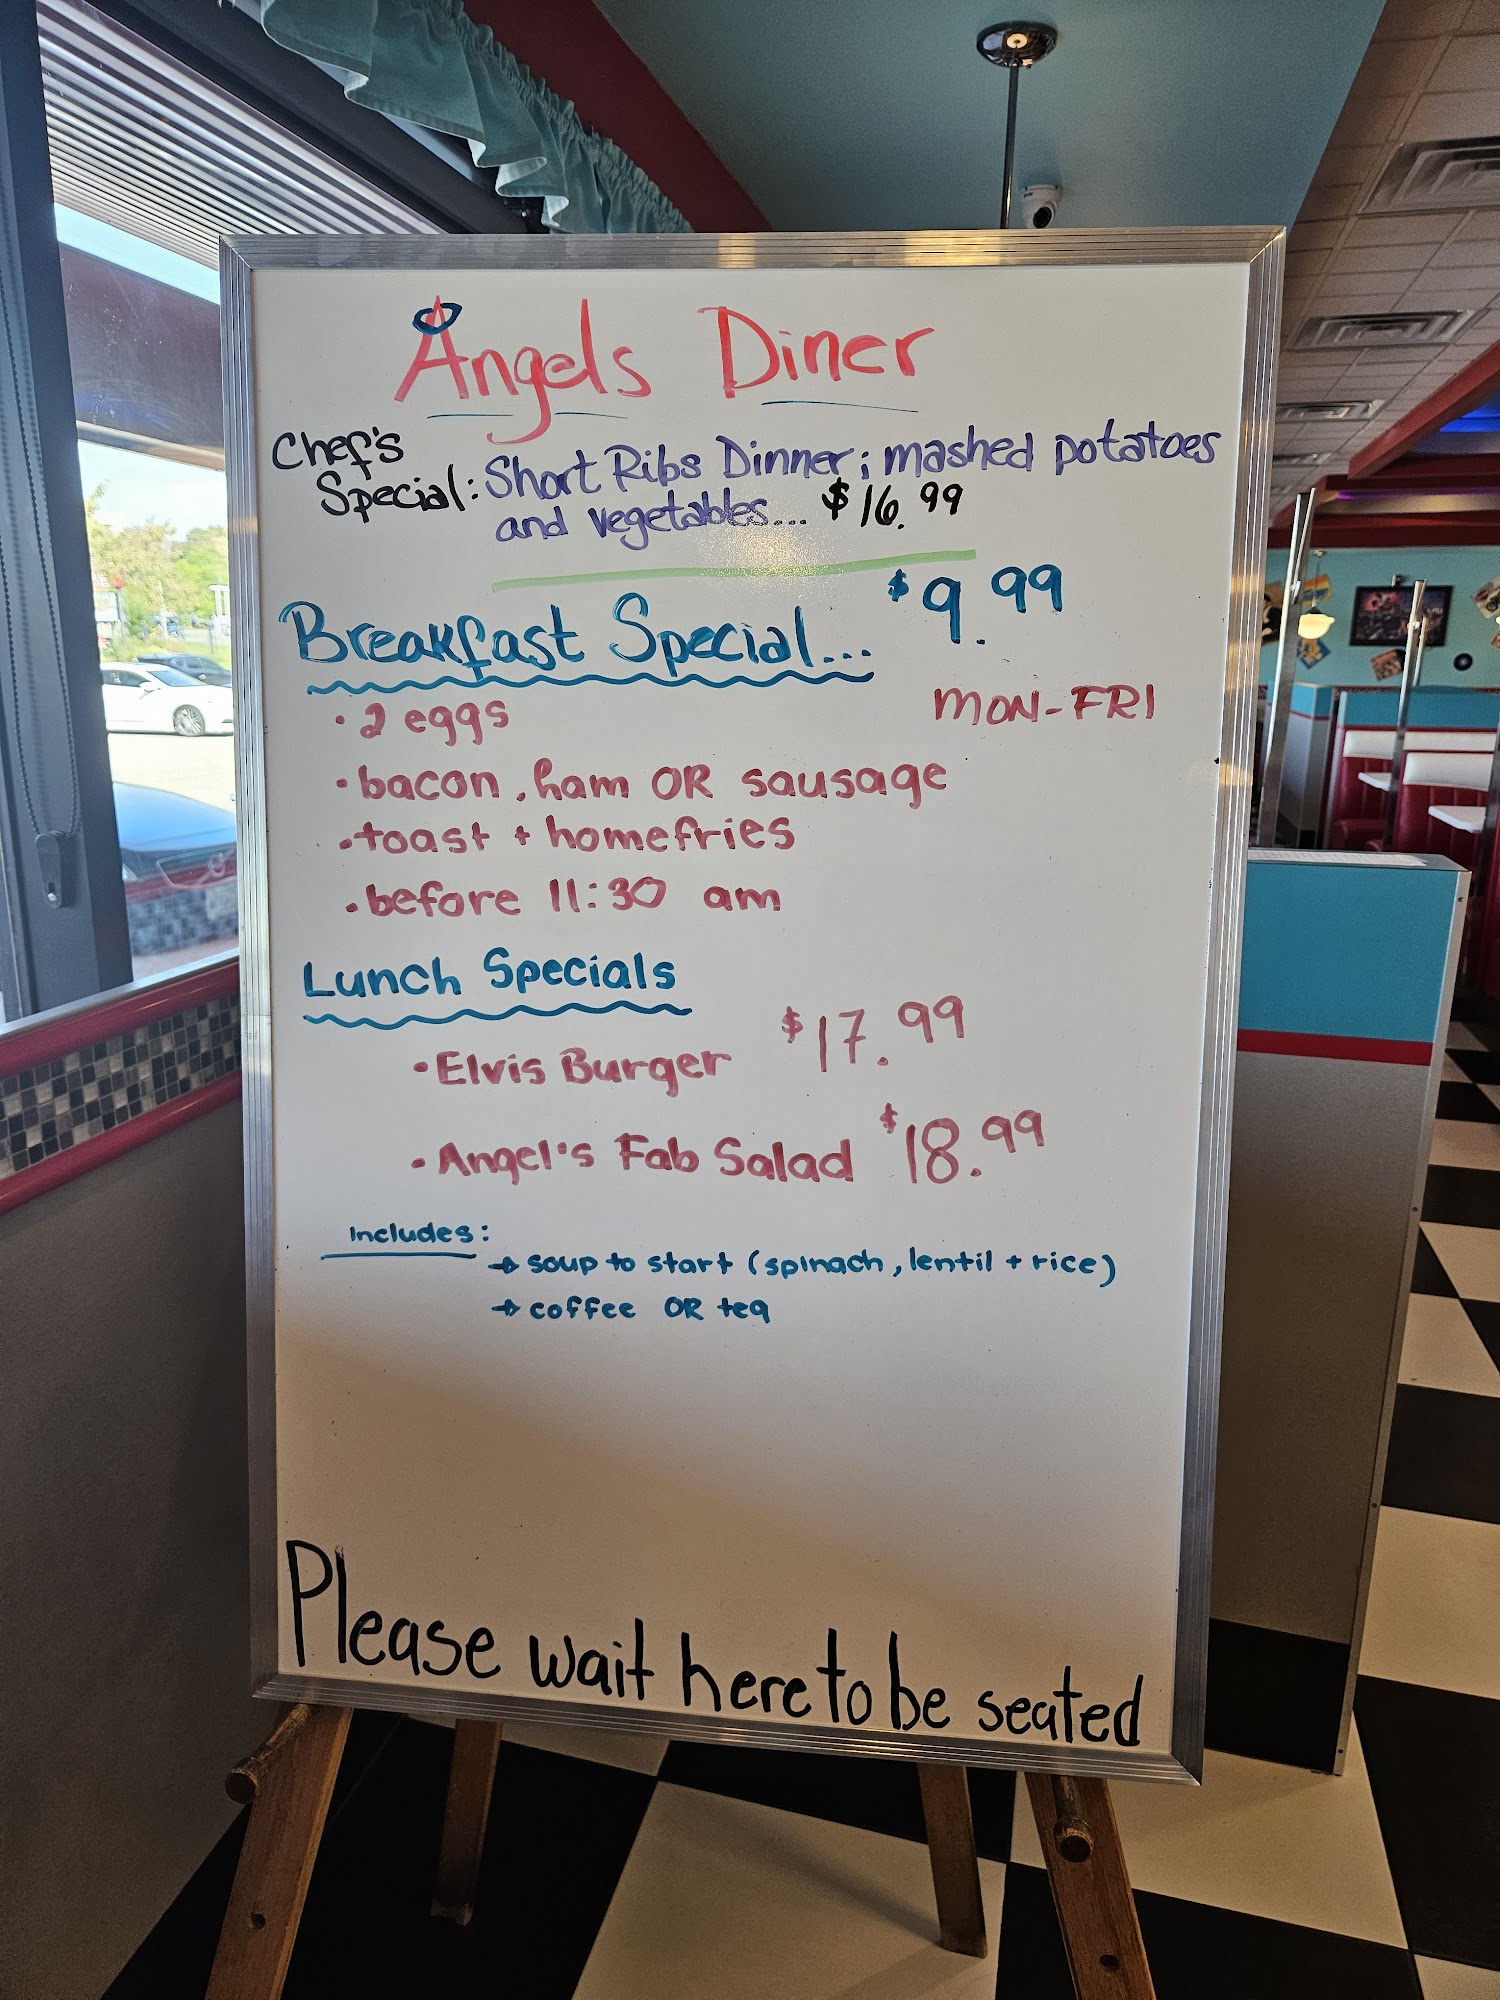 Angels Diner
Chef's
Special: Short Ribs Dinner; mashed potatoes
and vegetables... $16.99
Breakfast Special... $9.99
MON-FRI
• 2 eggs
• bacon, ham OR sausage
• toast + homefries
• before 11:30 am
Lunch Specials
• Elvis Burger $17.99
• Angel's Fab Salad $18.99
Includes:
→ soup to start (spinach, lentil + rice)
→ coffee OR tea
Please wait here to be seated